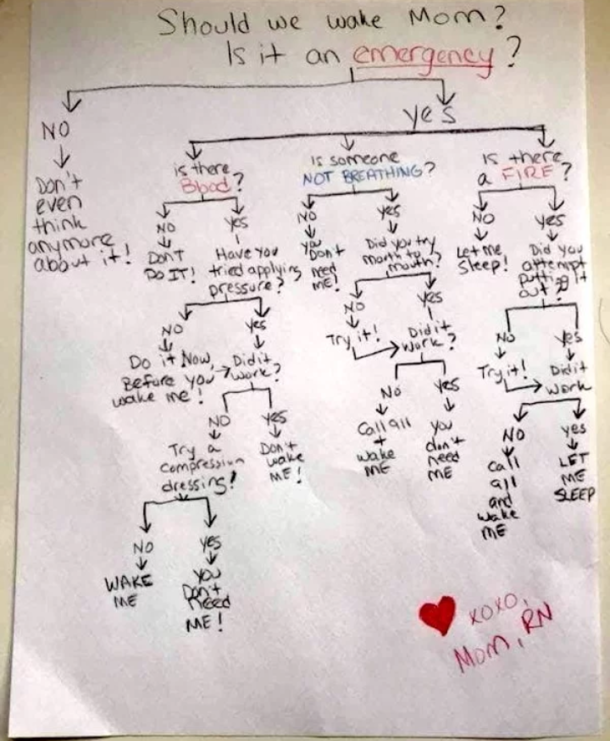 Should we wake Mom?
Is it an emergency?
NO
Don't
even
think
anymore
about it!
yes
is there
Blood?
NO
DON'T
DO IT!
yes
Have you
tried applying
pressure?
NO
Do it Now,
Before you
wake me!
yes
Did it
work?
NO
Try a
compression
dressing!
NO
WAKE
ME
yes
you
Don't
Need
ME!
yes
Don't
wake
ME!
is someone
NOT BREATHING?
NO
you
Don't
need
me!
yes
Did you try
mouth to
mouth?
NO
Try it!
yes
Did it
work?
No
Call 911
+
wake
ME
yes
you
don't
need
ME
Is there
a FIRE?
NO
Let me
Sleep!
yes
Did you
attempt
putting it
out?
No
Try it!
yes
Did it
work
NO
Call
911
and
wake
ME
yes
LET
ME
SLEEP
xoxo,
Mom, RN